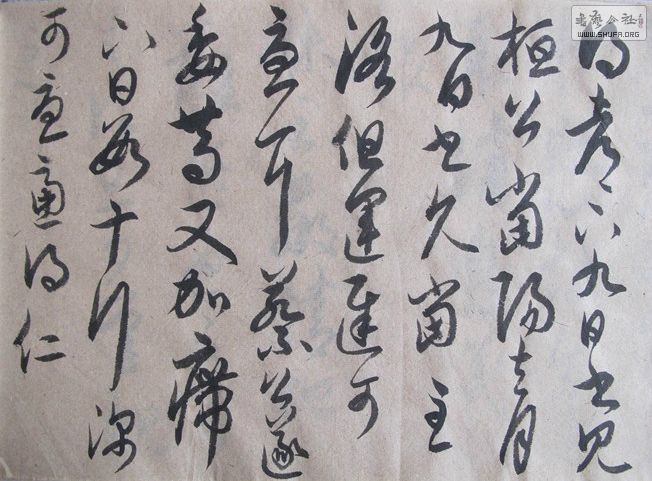 得都下九日書見
桓公當陽去月
九日書久當至
洛但運遲可
憂耳蔡公遂
委篤又加㿃
下日數十行深
可憂慮得仁
書藝公社
WWW.SHUFA.ORG